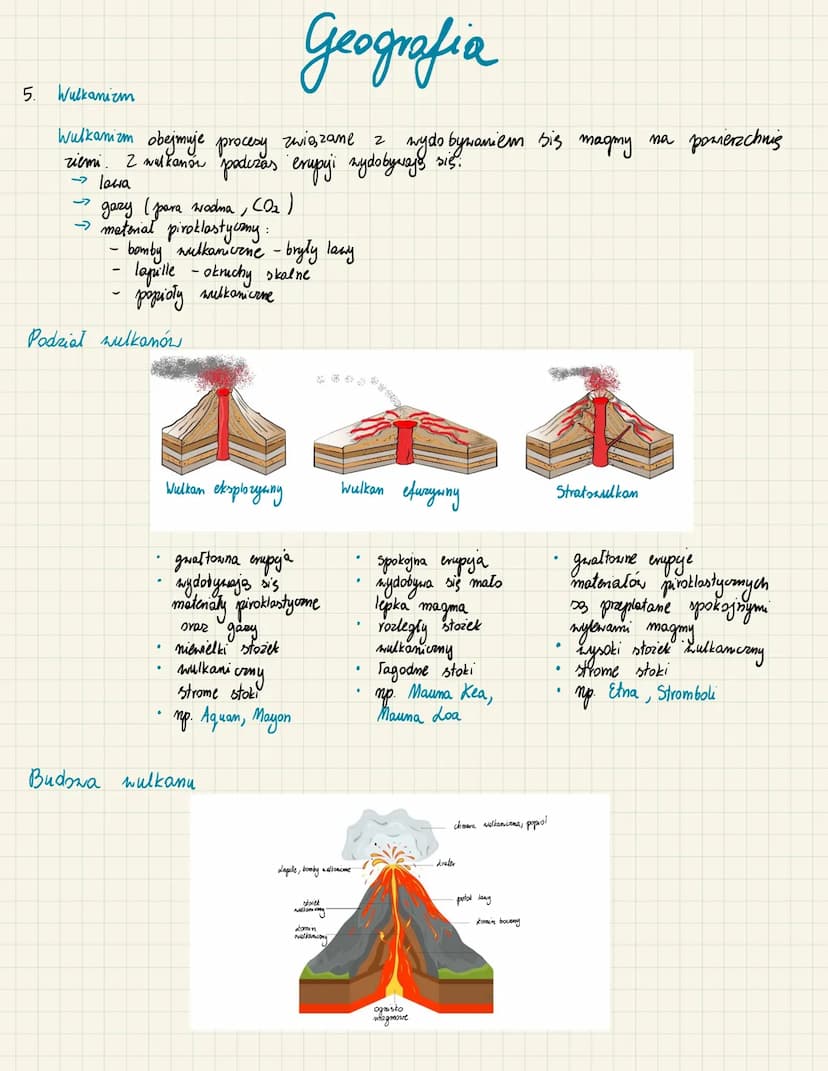 Geografia
5. Wulkanizm
Wulkanizm obejmuje procesy związane z wydobywaniem się magmy na powierzchnię
ziemi. Z wulkanów podczas erupcji wydobywają się:
→ lawa
→ gazy (para wodna, CO₂)
→ materiał piroklastyczny:
- bomby wulkaniczne - bryły lawy
- lapille - okruchy skalne
- popioły wulkaniczne
Podział wulkanów
Wulkan eksplozywny
Wulkan efuzywny
Stratowulkan
• gwałtowna erupcja
• wydobywają się
materiały piroklastyczne
oraz gazy
• niewielki stożek
• wulkaniczny
strome stoki
• np. Aquan, Mayon
• spokojna erupcja
• wydobywa się mało
lepka magma
• rozległy stożek
wulkaniczny
• łagodne stoki
• np. Mauna Kea,
Mauna Loa
• gwałtowne erupcje
materiałów piroklastycznych
są przeplatane spokojnymi
wylewami magmy
• wysoki stożek wulkaniczny
• strome stoki
• np. Etna, Stromboli
Budowa wulkanu
chmura wulkaniczna, popiół
lapille, bomby wulkaniczne
krater
stożek
wulkaniczny
potok lawy
komin boczny
komin
wulkaniczny
ognisko
magmowe